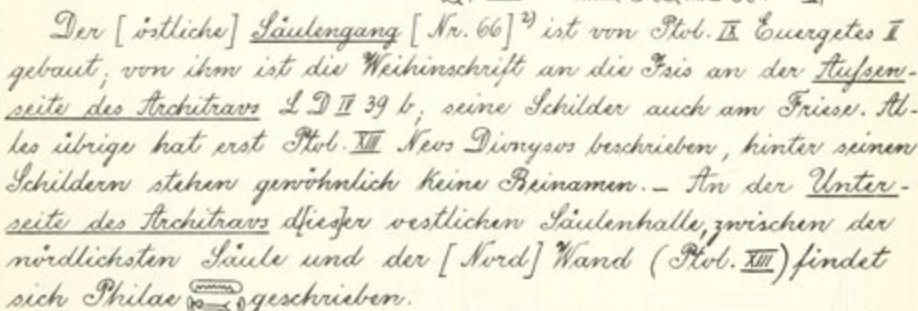 Der [östliche] Säulengang [Nr. 66]²⁾ ist von Ptol. IX Euergetes II
gebaut; von ihm ist die Weihinschrift an die Isis an der Außen-
seite des Architravs L D IV 39 b; seine Schilder auch am Friese. Al-
les übrige hat erst Ptol. XIII Neos Dionysos beschrieben, hinter seinen
Schildern stehen gewöhnlich keine Beinamen. – An der Unter-
seite des Architravs d[ies]er oestlichen Säulenhalle, zwischen der
nördlichsten Säule und der [Nord] Wand (Ptol. XIII) findet
sich Philae geschrieben.